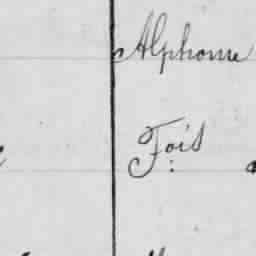 Alphonse
Fois